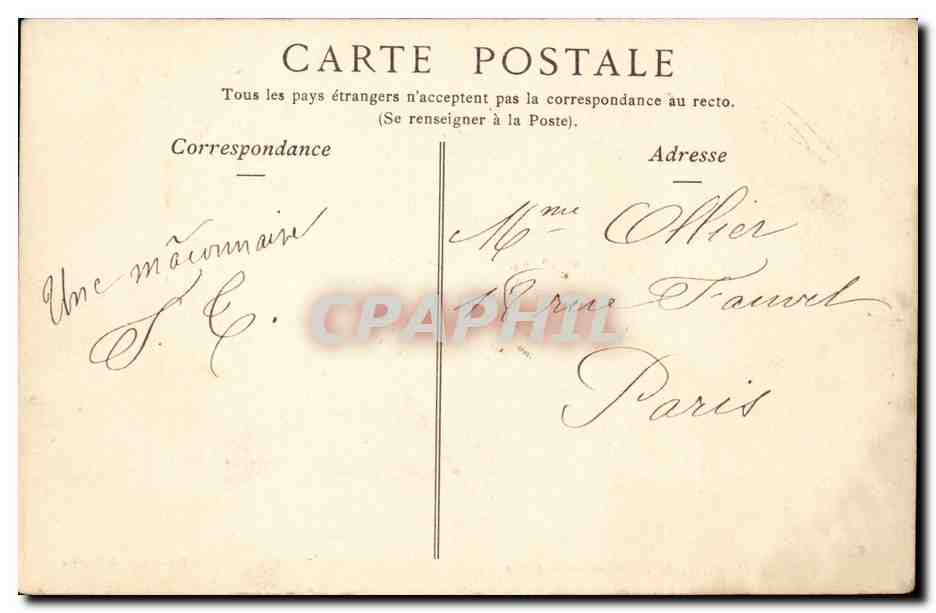 CARTE POSTALE
Tous les pays étrangers n'acceptent pas la correspondance au recto.
(Se renseigner à la Poste).
Correspondance
Une mâconnaise
Adresse
Mme Ollier
rue Fauvet
Paris
CPAPHIL